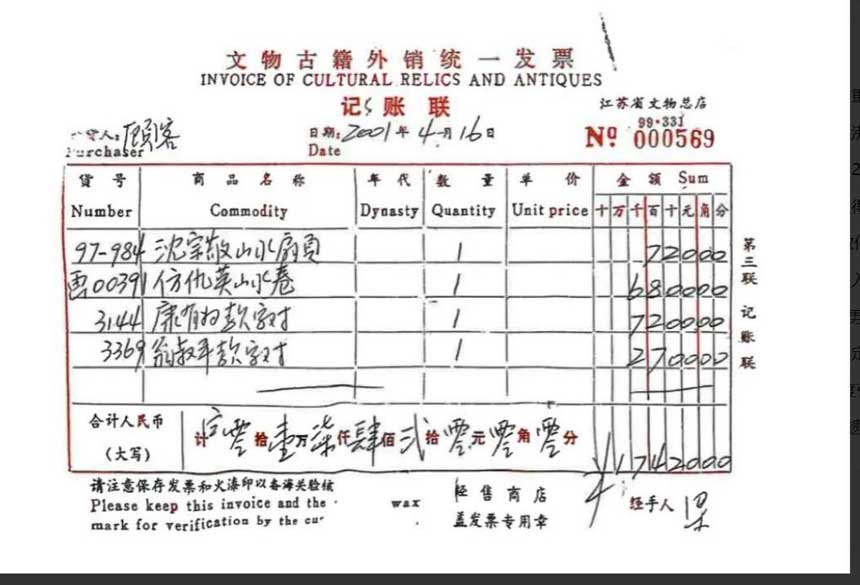 文物古籍外销统一发票
INVOICE OF CULTURAL RELICS AND ANTIQUES
记账联
江苏省文物总店
99·331
Nº 000569
货人: 顾客
Purchaser
日期: 2001年4月16日
Date
货号 商品名称 年代 数量 单价 金额 Sum
Number Commodity Dynasty Quantity Unit price 十万千百十元角分
97-984 沈宗敬山水扇页 1 72000
画00391 仿仇英山水卷 1 680000
3144 康有为款字对 1 720000
3369 翁叔平款字对 1 270000
合计人民币
(大写)
计 零拾壹万柒仟肆佰贰拾零元零角零分
¥1742000
第三联 记账联
请注意保存发票和火漆印以备海关验核
Please keep this invoice and the wax
mark for verification by the cu
经售商店
盖发票专用章
经手人 梁